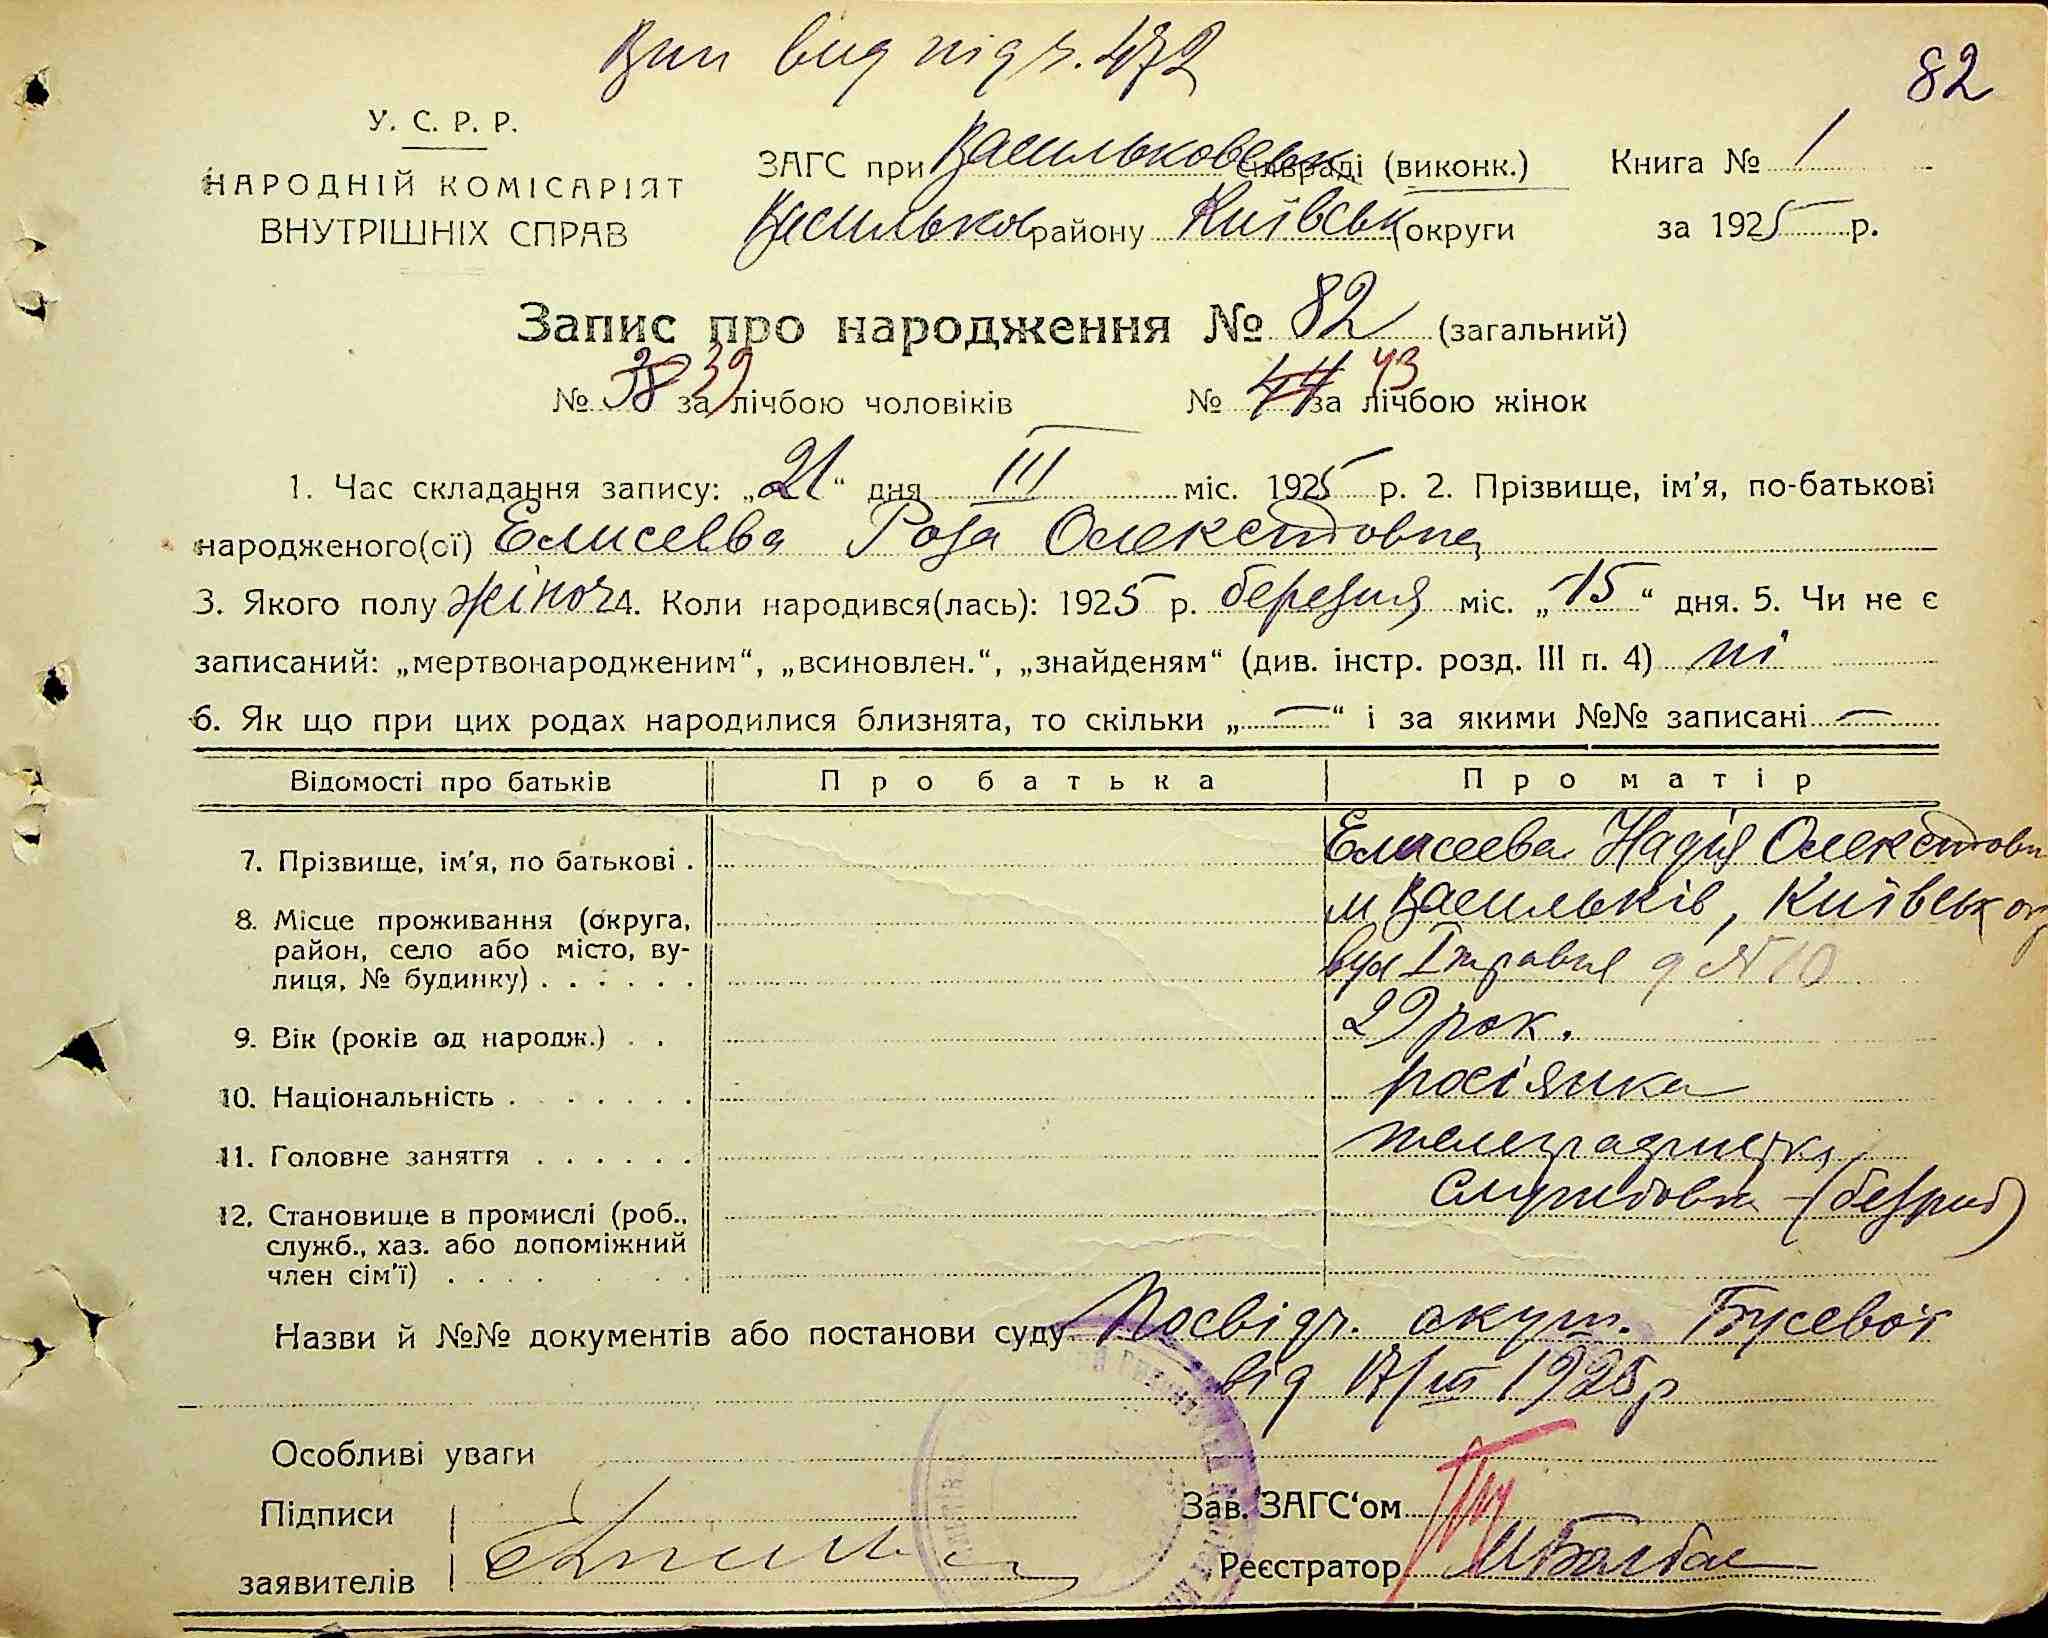 Вип вид під ч. 472
82
У. С. Р. Р.
НАРОДНІЙ КОМІСАРІЯТ
ВНУТРІШНІХ СПРАВ
ЗАГС при Васильковськ сільраді (виконк.) Книга № 1
Васильков району Київськ округи за 1925 р.
Запис про народження № 82 (загальний)
№ 38 39 за лічбою чоловіків № 44 43 за лічбою жінок
1. Час складання запису: „21“ дня III міс. 1925 р. 2. Прізвище, ім'я, по-батькові
народженого(ої) Елисеева Роза Олександровна
3. Якого полу жіноч 4. Коли народився(лась): 1925 р. березня міс. „15“ дня. 5. Чи не є
записаний: „мертвонародженим“, „всиновлен.“, „знайденям“ (див. інстр. розд. III п. 4) ні
6. Як що при цих родах народилися близнята, то скільки „—“ і за якими №№ записані —
Відомості про батьків Про батька Про матір
7. Прізвище, ім'я, по батькові . Елисеева Надія Олександровн
8. Місце проживання (округа, м Васильків, Київськ окр
район, село або місто, ву- вул І травня д №10
лиця, № будинку) . . . . . .
9. Вік (років од народж.) . . 29 рок.
10. Національність . . . . . . . росіянка
11. Головне заняття . . . . . . телеграфистка
12. Становище в промислі (роб., службовк – (безроб)
служб., хаз. або допоміжний
член сім'ї) . . . . . . .
Назви й №№ документів або постанови суду Посвідч. акуш. Гусевої
від 17/III 1925 р
Особливі уваги
Підписи
заявителів
Зав. ЗАГС'ом
Реєстратор